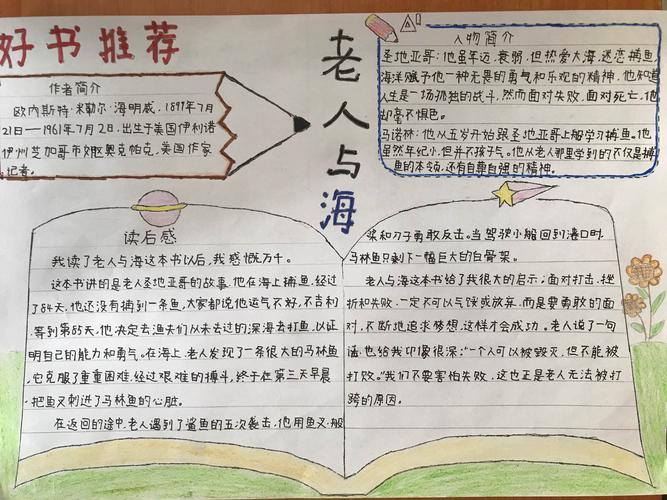 好书推荐
作者简介
欧内斯特·米勒尔·海明威,1899年7月
21日一1961年7月2日,出生于美国伊利诺
伊州芝加哥市郊区奥克帕克,美国作家
记者。
老人与海
人物简介
圣地亚哥:他虽年迈,衰弱,但热爱大海,迷恋捕鱼,
海洋赋予他一种无畏的勇气和乐观的精神,他知道
人生是一场孤独的战斗,然而面对失败,面对死亡,他
却毫不惧色。
马诺林:他从五岁开始跟圣地亚哥上船学习捕鱼。他
虽然年纪小,但并不孩子气。他从老人那里学到的不仅是捕
鱼的本领,还有自尊自强的精神。
读后感
我读了老人与海这本书以后,我感慨万千。
这本书讲的是老人圣地亚哥的故事,他在海上捕鱼,经过
了84天,他还没有捕到一条鱼,大家都说他运气不好,不吉利
,等到第85天,他决定去渔夫们从未去过的深海去打鱼,以证
明自己的能力和勇气。在海上,老人发现了一条很大的马林鱼
,它克服了重重困难,经过艰难的搏斗,终于在第三天早晨
,把鱼叉刺进了马林鱼的心脏。
在返回的途中,老人遇到了鲨鱼的五次袭击,他用鱼叉、船
桨和刀子勇敢反击。当驾驶小艇回到港口时,
马林鱼只剩下一幅巨大的白骨架。
老人与海这本书给了我很大的启示:面对打击、挫
折和失败,一定不可以气馁或放弃,而是要勇敢的面
对,不断地追求梦想,这样才会成功。老人说了一句
话,也给我印像很深:"一个人可以被毁灭,但不能被
打败。"我们不要害怕失败,这也正是老人无法被打
垮的原因。